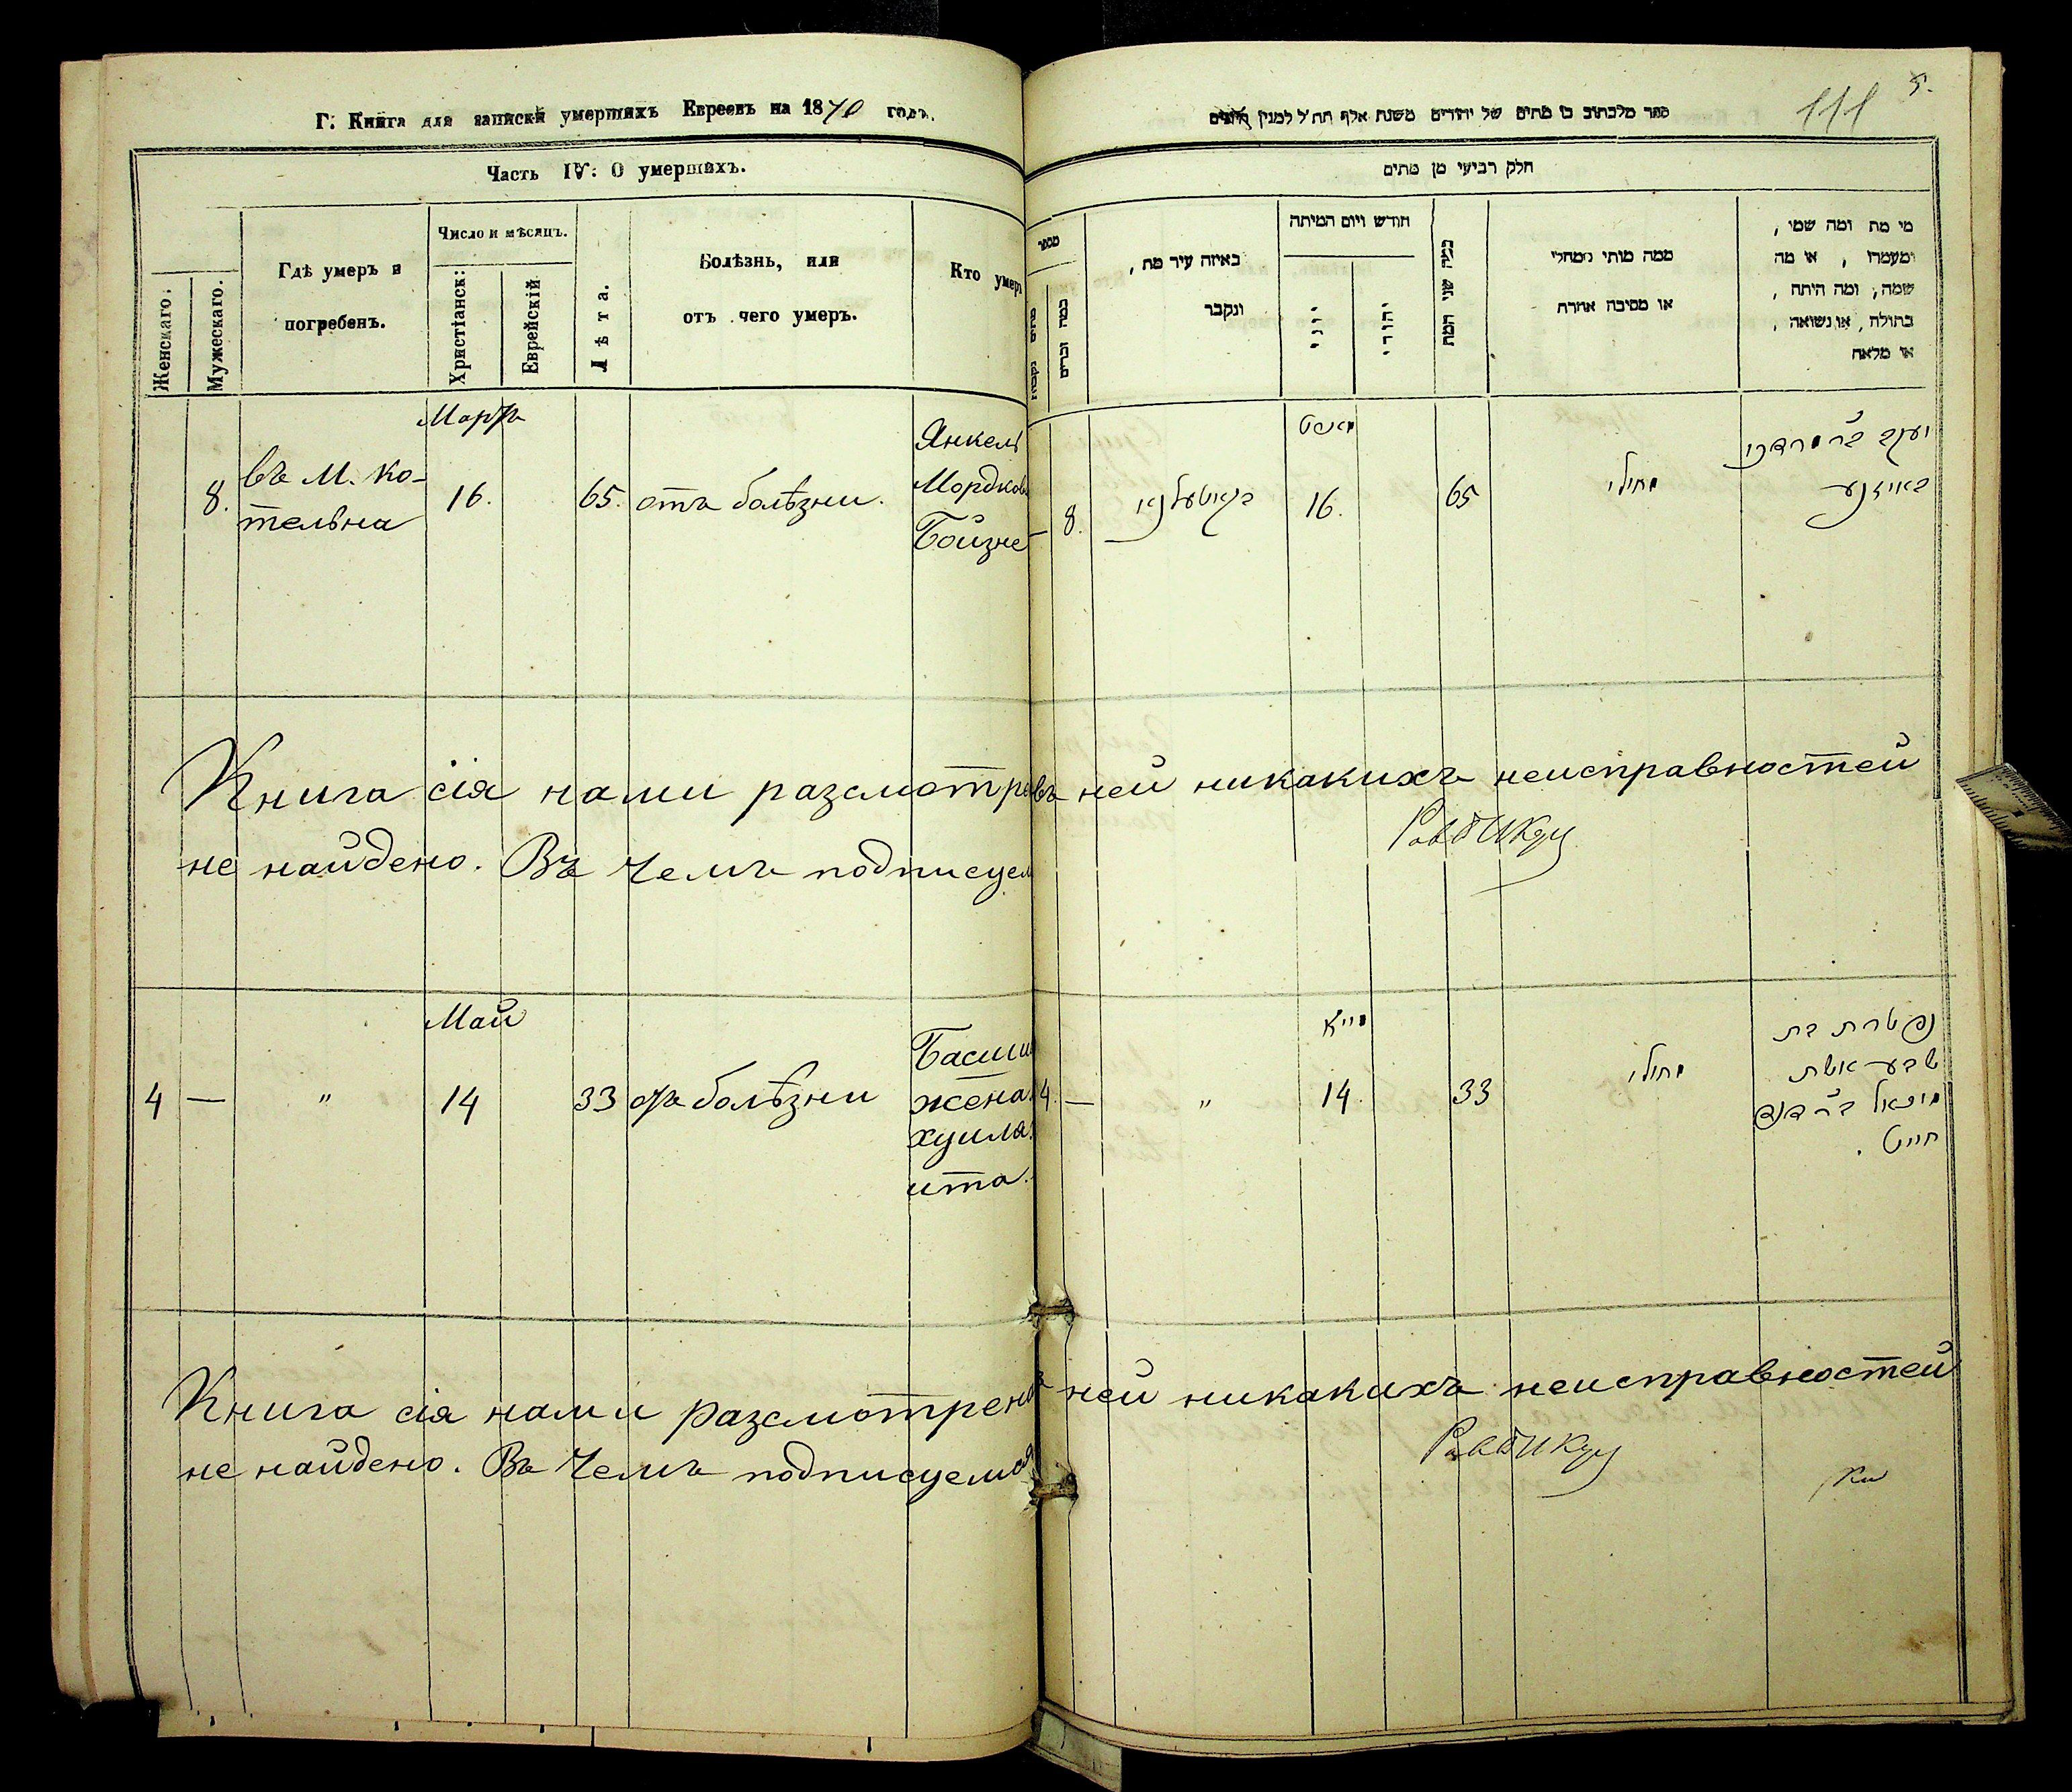 Г. Книга для записки умершихъ Евреевъ на 1870 годъ.
Часть IV: О умершихъ.
Женскаго.
Мужескаго.
Гдѣ умеръ и
погребенъ.
Число и мѣсяцъ.
Христіанск:
Еврейскій
Лѣта.
Болѣзнь, или
отъ чего умеръ.
Кто умеръ
Мартъ
8.
въ м. Ко-
тельна
16.
65.
отъ болѣзни.
Янкель
Мордков
Бойзне
Книга сія нами разсмотре
не найдено. Въ чемъ подписуем
Май
4 — " 14 33 отъ болѣзни
жена
хуила
ита.
Книга сія нами разсмотрен
не найдено. Въ чемъ подписуемся
111
5.
ספר מלכתוב בו מתים של יהודים משנת אלף תת"ל למנין
חלק רביעי מן מתים
מספר
כמה זכרים
באיזה עיר מת,
ונקבר
חודש ויום המיתה
יווני
יהודי
כמה שני המת
ממה מותי ממחלי
או מסיבה אחרת
מי מת ומה שמו,
ומעמדו, או מה
שמה, ומה היתה,
בתולה, או נשואה,
או מלאה
8.
16.
65
מחולי
יעקב ב"ר מרדכי
באיזנע
въ ней никакихъ неисправностей
מייא
4. — " 14. 33
מחולי
נפטרת בת
שבע אשת
חייט.
ней никакихъ неисправностей